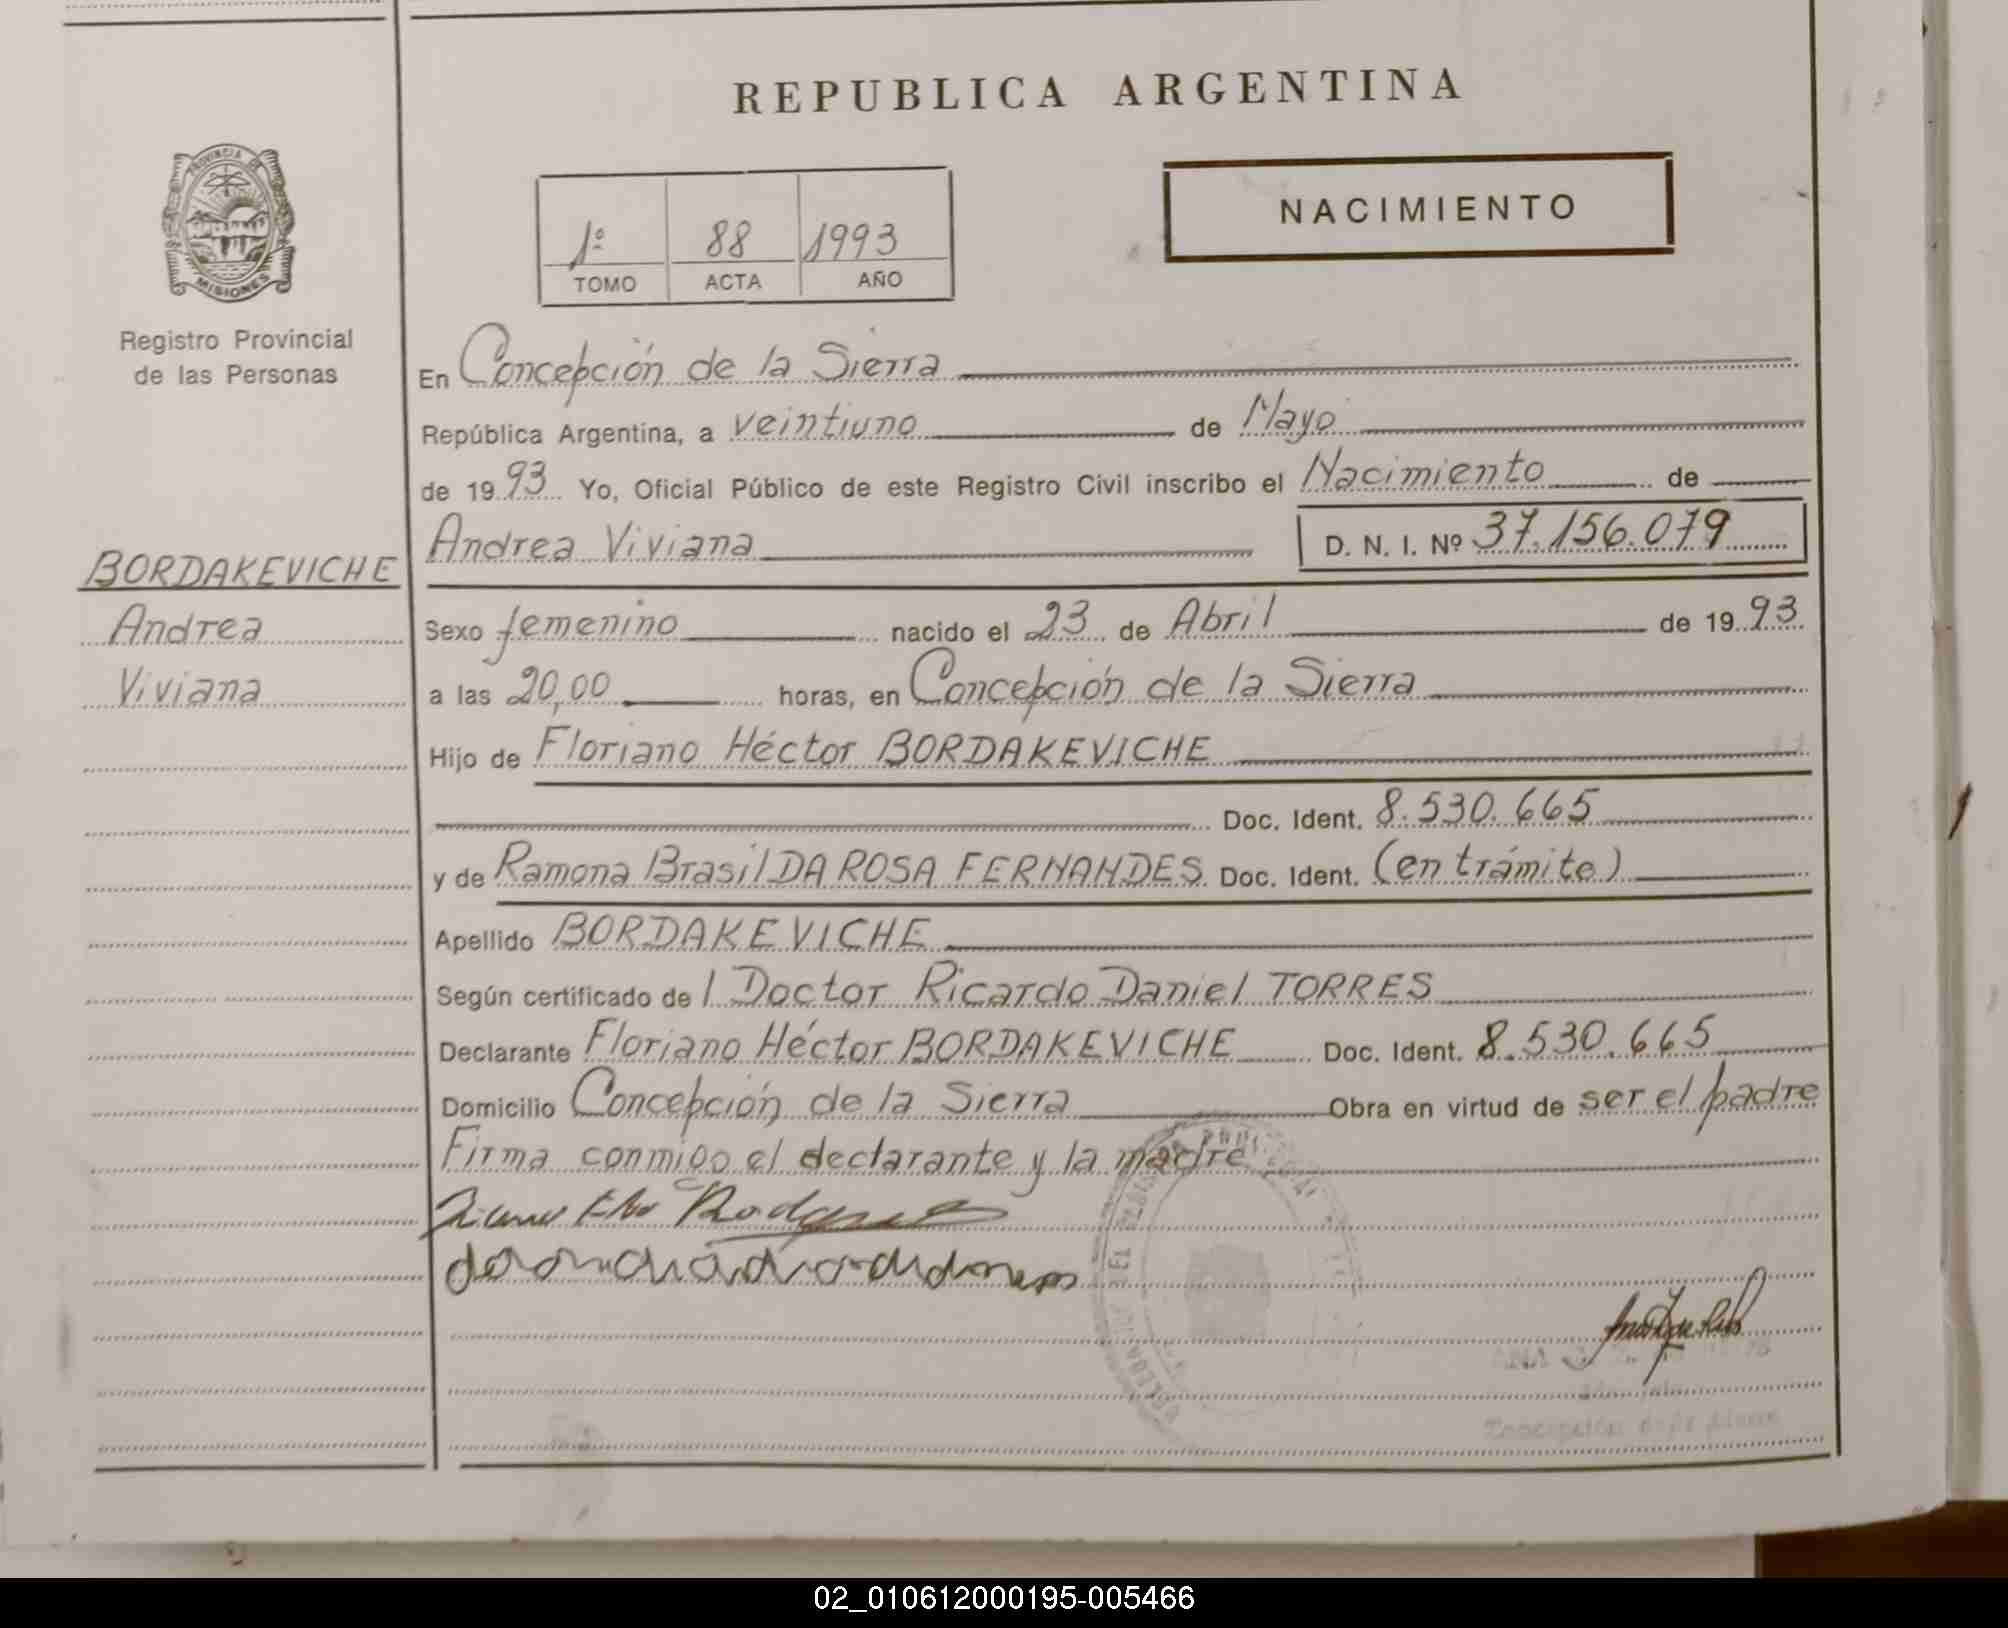 REPUBLICA ARGENTINA
PROVINCIA DE
MISIONES
Registro Provincial
de las Personas
1º 88 1993
TOMO ACTA AÑO
NACIMIENTO
En Concepción de la Sierra
República Argentina, a veintiuno de Mayo
de 1993 Yo, Oficial Público de este Registro Civil inscribo el Nacimiento de
Andrea Viviana D. N. I. Nº 37.156.079
BORDAKEVICHE
Andrea
Viviana
Sexo femenino nacido el 23 de Abril de 1993
a las 20,00 horas, en Concepción de la Sierra
Hijo de Floriano Héctor BORDAKEVICHE
Doc. Ident. 8.530.665
y de Ramona Brasil DA ROSA FERNANDES Doc. Ident. (en trámite)
Apellido BORDAKEVICHE
Según certificado del Doctor Ricardo Daniel TORRES
Declarante Floriano Héctor BORDAKEVICHE Doc. Ident. 8.530.665
Domicilio Concepción de la Sierra Obra en virtud de ser el padre
Firma conmigo el declarante y la madre
02_010612000195-005466